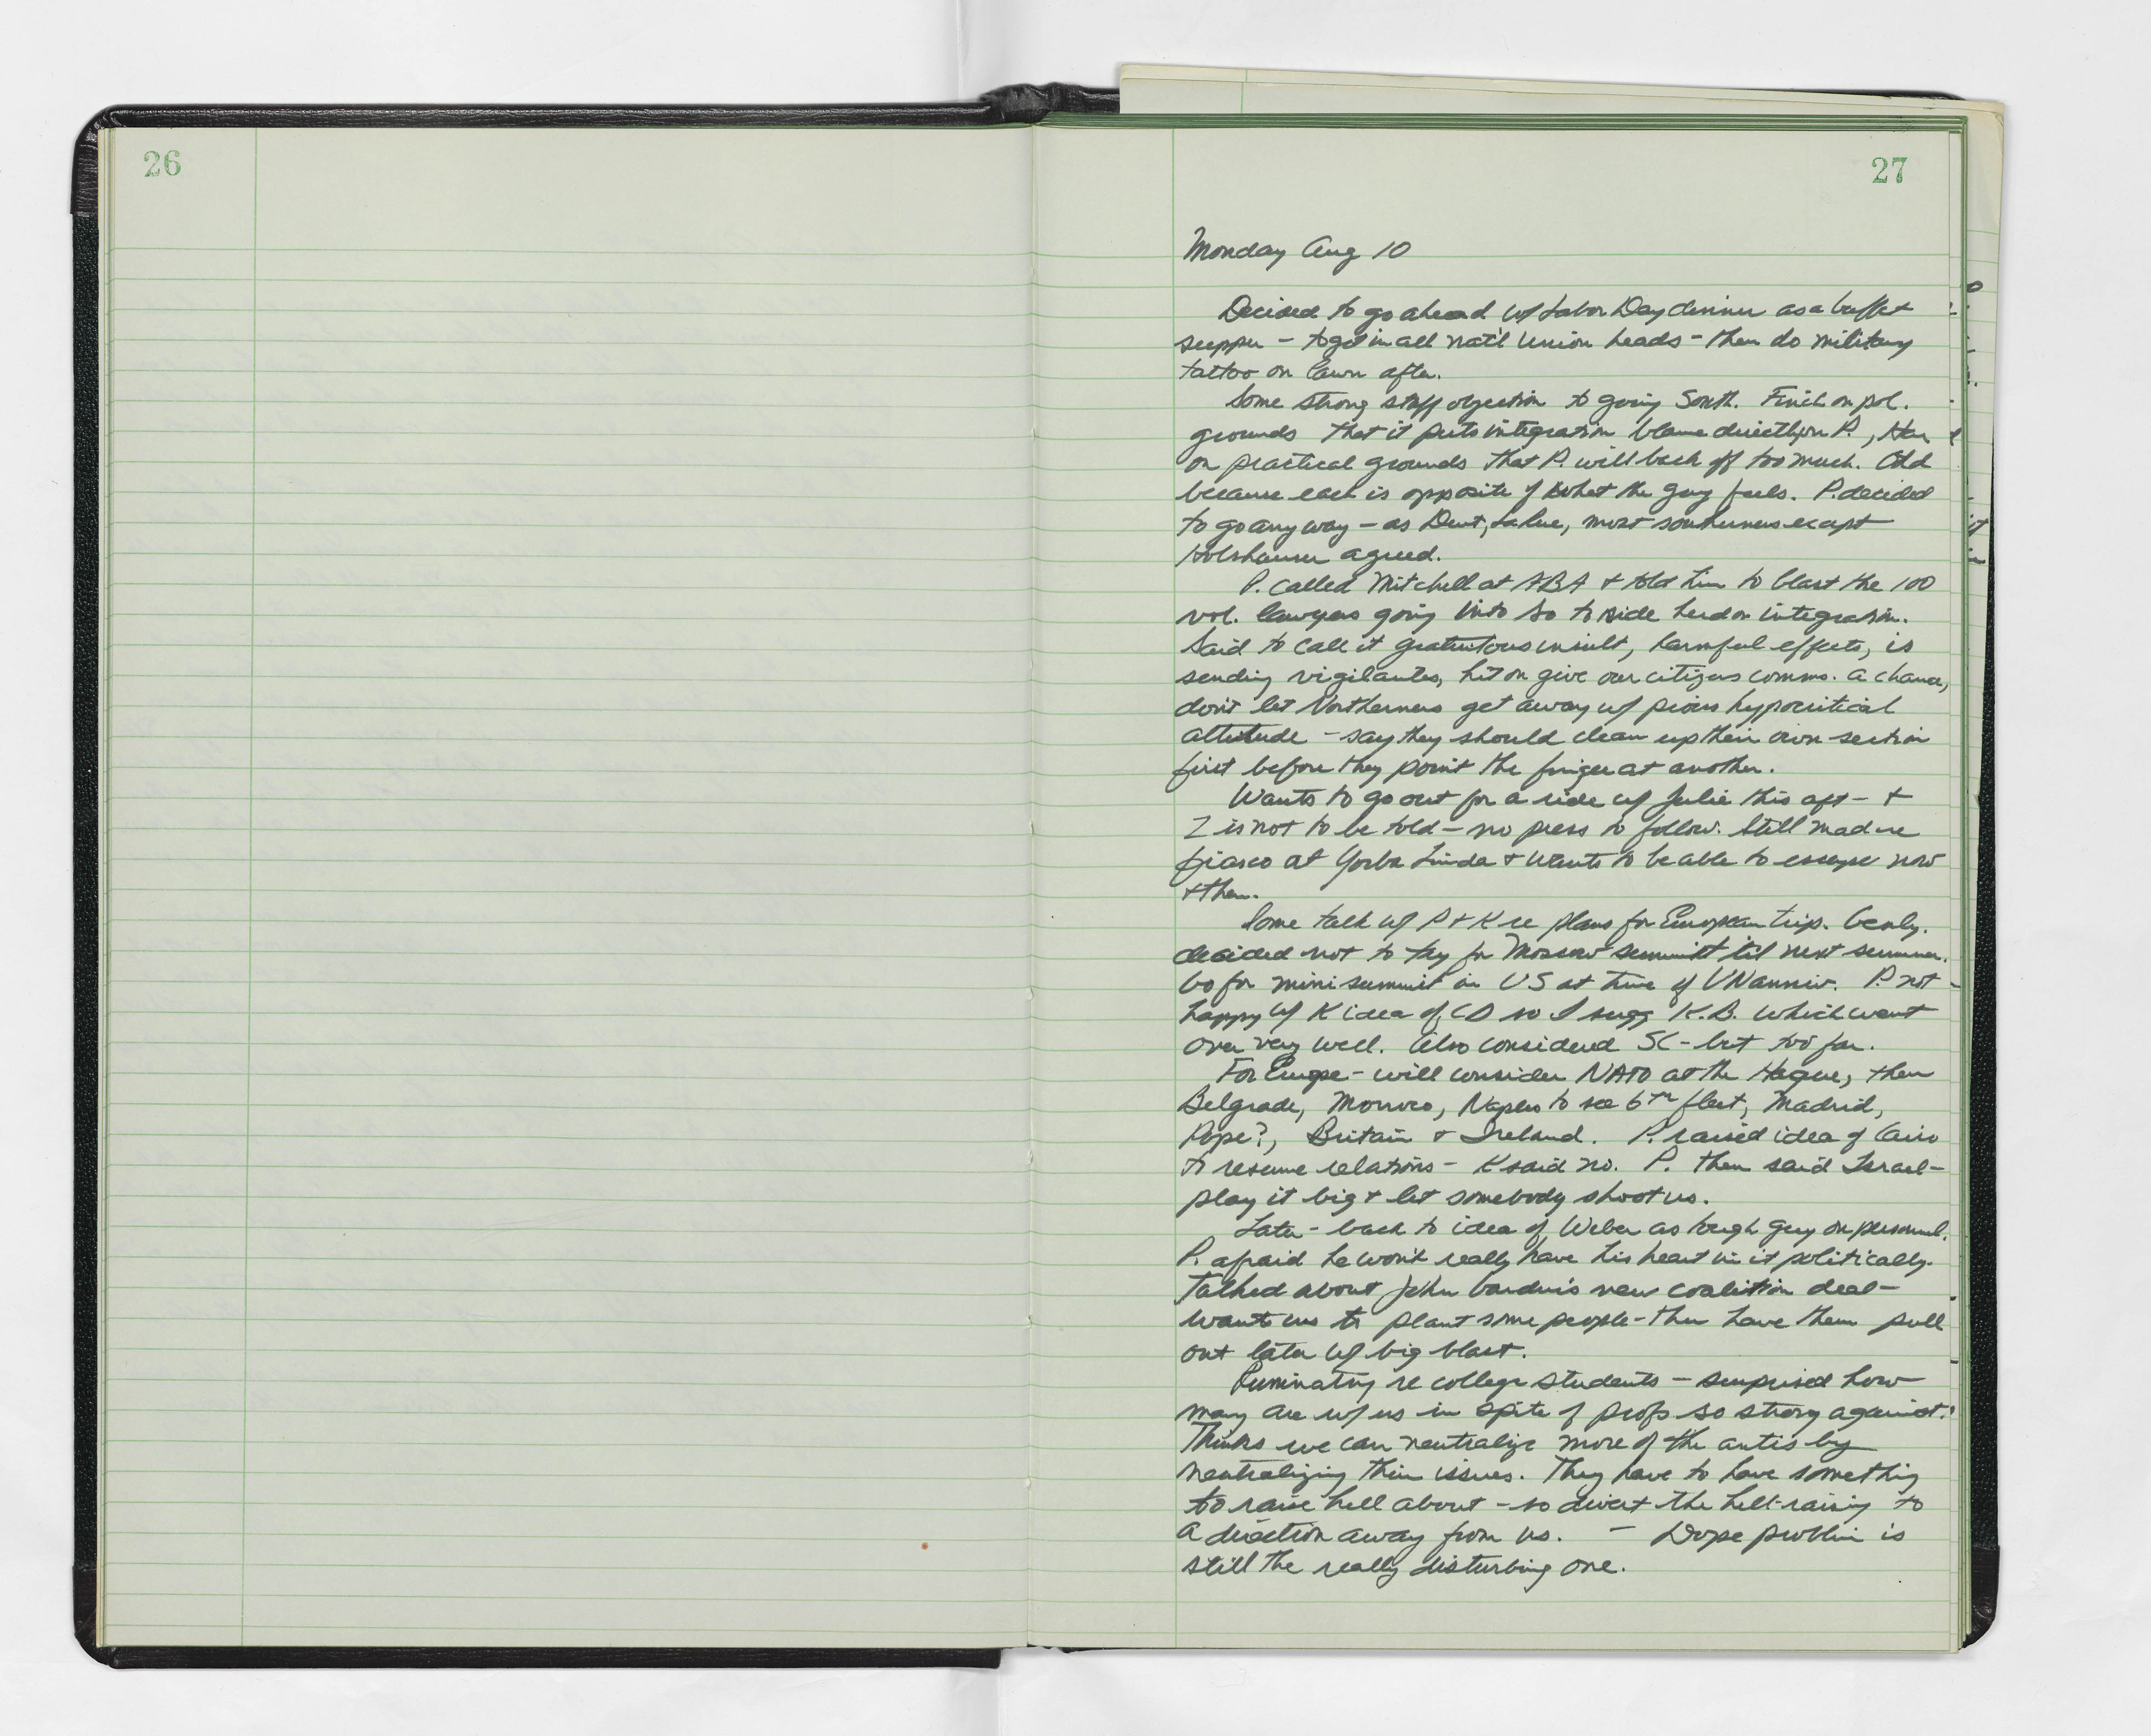 26
27
Monday Aug 10
Decided to go ahead w/ Labor Day dinner as a buffet
supper - to get in all nat'l Union heads - then do military
tattoo on lawn after.
Some strong staff objection to going South. Finch on pol.
grounds that it puts integration blame directly on P., Har
on practical grounds that P. will back off too much. Odd
because each is opposite of what the guy feels. P. decided
to go anyway - as Dent, LaRue, most southerners except
Holshouser agreed.
P. called Mitchell at ABA & told him to blast the 100
vol. lawyers going into So to ride herd on integration.
Said to call it gratuitous insult, harmful effects, is
sending vigilantes, hit on give our citizens comms. a chance,
don't let Northerners get away w/ pious hypocritical
attitude - say they should clean up their own section
first before they point the finger at another.
Wants to go out for a ride w/ Julie this aft - &
Z is not to be told - no press to follow. Still mad re
fiasco at Yorba Linda & wants to be able to escape now
& then.
Some talk w/ P & K re plans for European trip. Genly.
decided not to try for Moscow summit til next summer.
Go for mini summit in US at time of UN anniv. P. not
happy w/ K idea of CD so I sugg K.B. which went
over very well. Also considered SC - but too far.
For Europe - will consider NATO at the Hague, then
Belgrade, Morroco, Naples to see 6th fleet, Madrid,
Pope?, Britain & Ireland. P. raised idea of Cairo
to resume relations - K said no. P. then said Israel -
play it big & let somebody shoot us.
Later - back to idea of Weber as tough guy on personnel.
P. afraid he won't really have his heart in it politically.
Talked about John Gardner's new coalition deal -
wants us to plant some people - then have them pull
out later w/ big blast.
Ruminating re college students - surprised how
many are w/ us in spite of profs so strong against.
Thinks we can neutralize more of the antis by
neutralizing their issues. They have to have something
to raise hell about - so divert the hell-raising to
a direction away from us. - Dope problem is
still the really disturbing one.